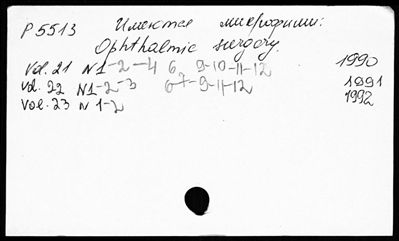 P 5513 Имеются микрофиши:
Ophthalmic surgery.
Vol. 21 N 1-2-4 6, 9-10-11-12 1990
Vol. 22 N 1-2-3 6-7-9-11-12 1991
Vol. 23 N 1-2 1992